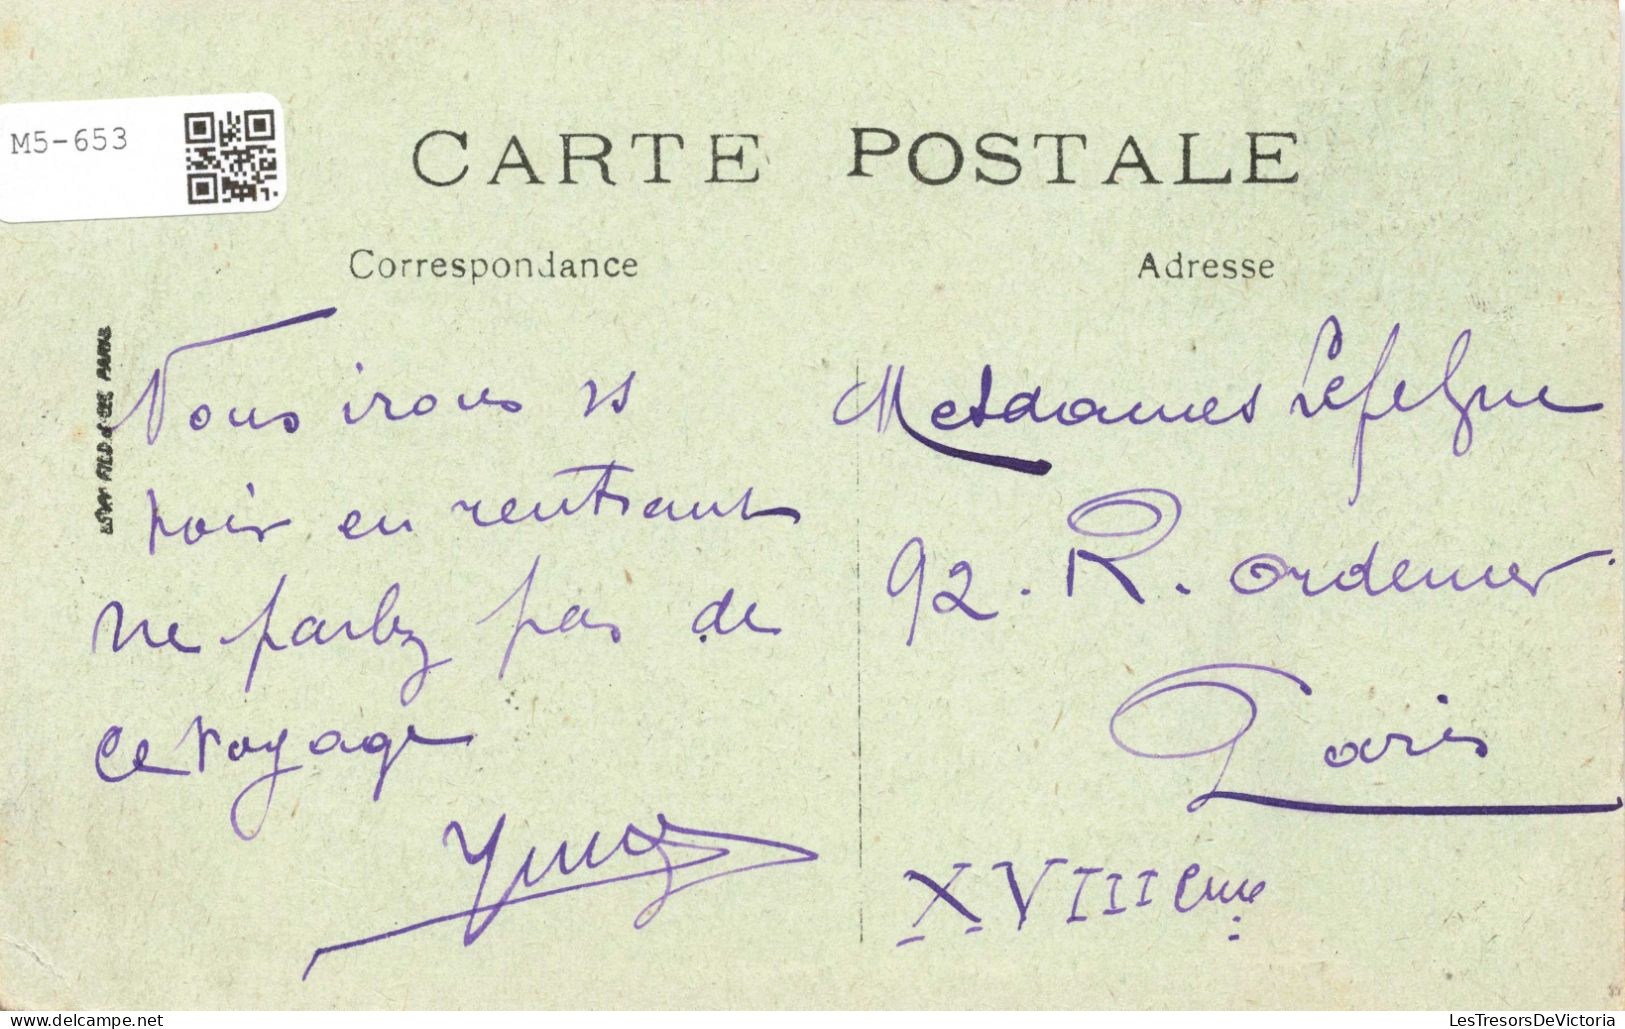 M5-653
CARTE POSTALE
Correspondance
Adresse
LEVY FILS & CIE PARIS
Nous irons vs
voir en rentrant
ne parlez pas de
ce voyage
Mesdames
92. R. Ordener.
Paris
XVIII eme
LesTresorsDeVictoria